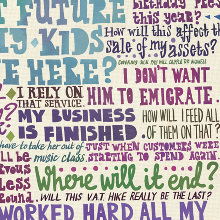 FUTURE
Birthday Pres
this year?
MY KIDS
HERE?
How will this affect th
sale of my assets?
I DON'T WANT
HIM TO EMIGRATE.
I RELY ON
THAT SERVICE.
MY BUSINESS
IS FINISHED
HOW WILL I FEED ALL
OF THEM ON THAT?
have to take her out of
music class.
JUST WHEN CUSTOMERS WERE
STARTING TO SPEND AGAIN.
ll be
Where will it end?
WILL THIS VAT HIKE REALLY BE THE LAST?
WORKED HARD ALL MY